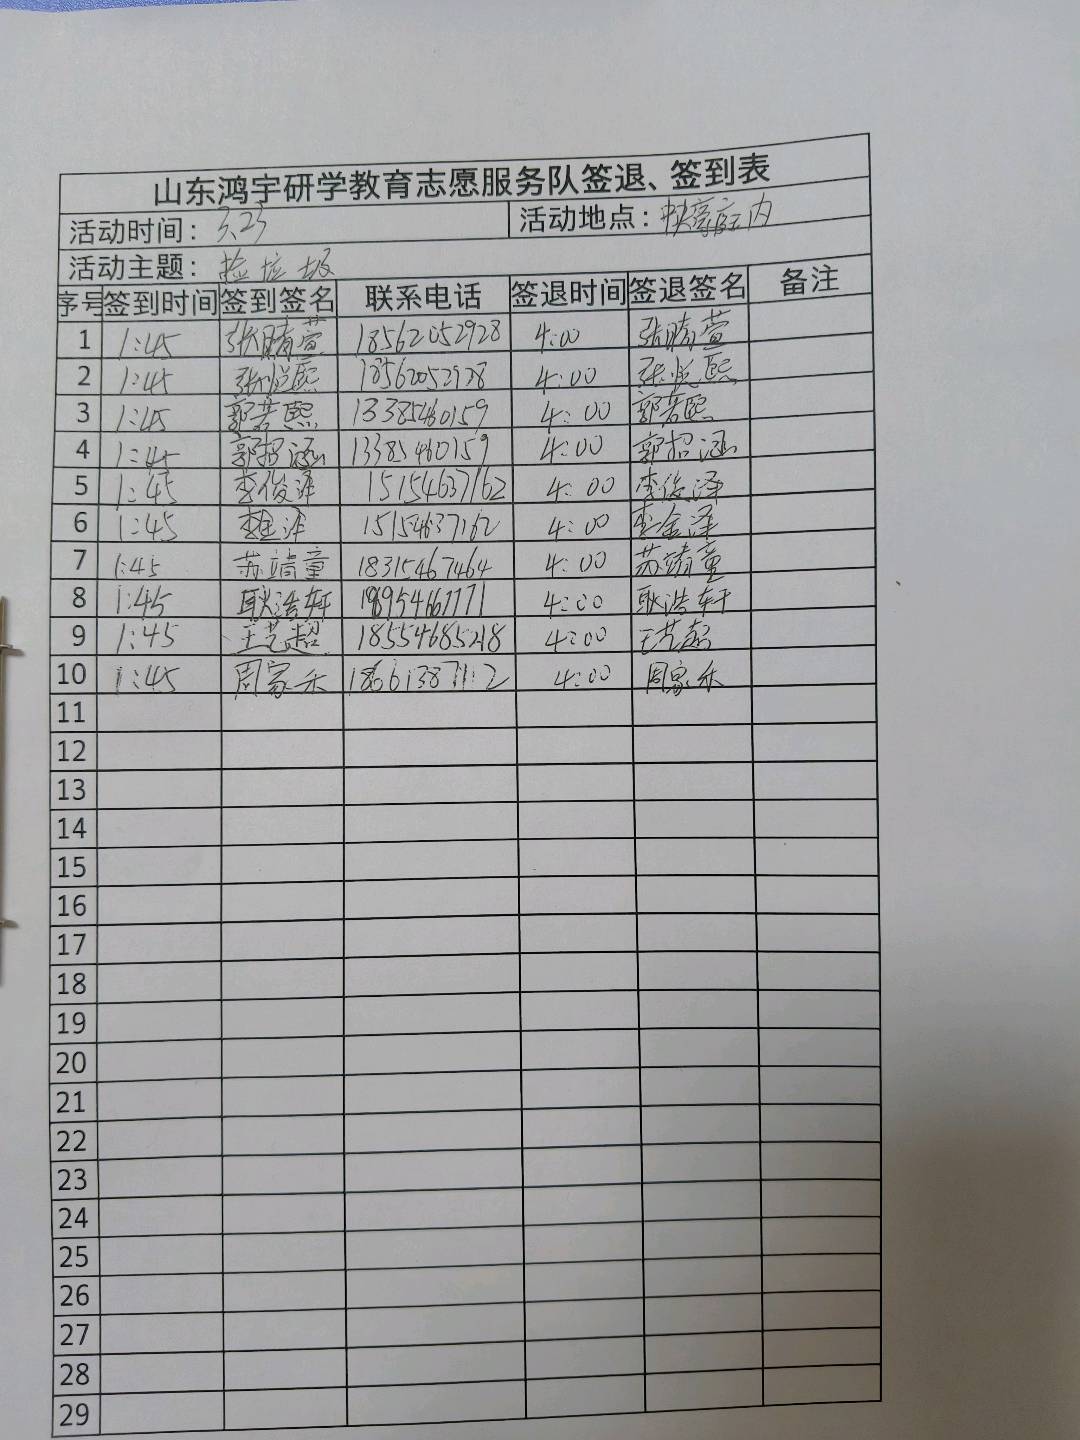 山东鸿宇研学教育志愿服务队签退、签到表
活动时间：3.23 活动地点：中央豪庭内
活动主题：捡垃圾
序号 签到时间 签到签名 联系电话 签退时间 签退签名 备注
1 1:45 张晴萱 18562052928 4:00 张晴萱
2 1:45 张悦熙 18562052928 4:00 张悦熙
3 1:45 郭若熙 13385460159 4:00 郭若熙
4 1:45 郭招涵 13385460159 4:00 郭招涵
5 1:45 李俊泽 15154637162 4:00 李俊泽
6 1:45 李金泽 15154637162 4:00 李金泽
7 1:45 苏靖童 18315467464 4:00 苏靖童
8 1:45 耿浩轩 4:00 耿浩轩
9 1:45 王艺超 18554685218 4:00 王艺超
10 1:45 周家禾 4:00 周家禾
11
12
13
14
15
16
17
18
19
20
21
22
23
24
25
26
27
28
29